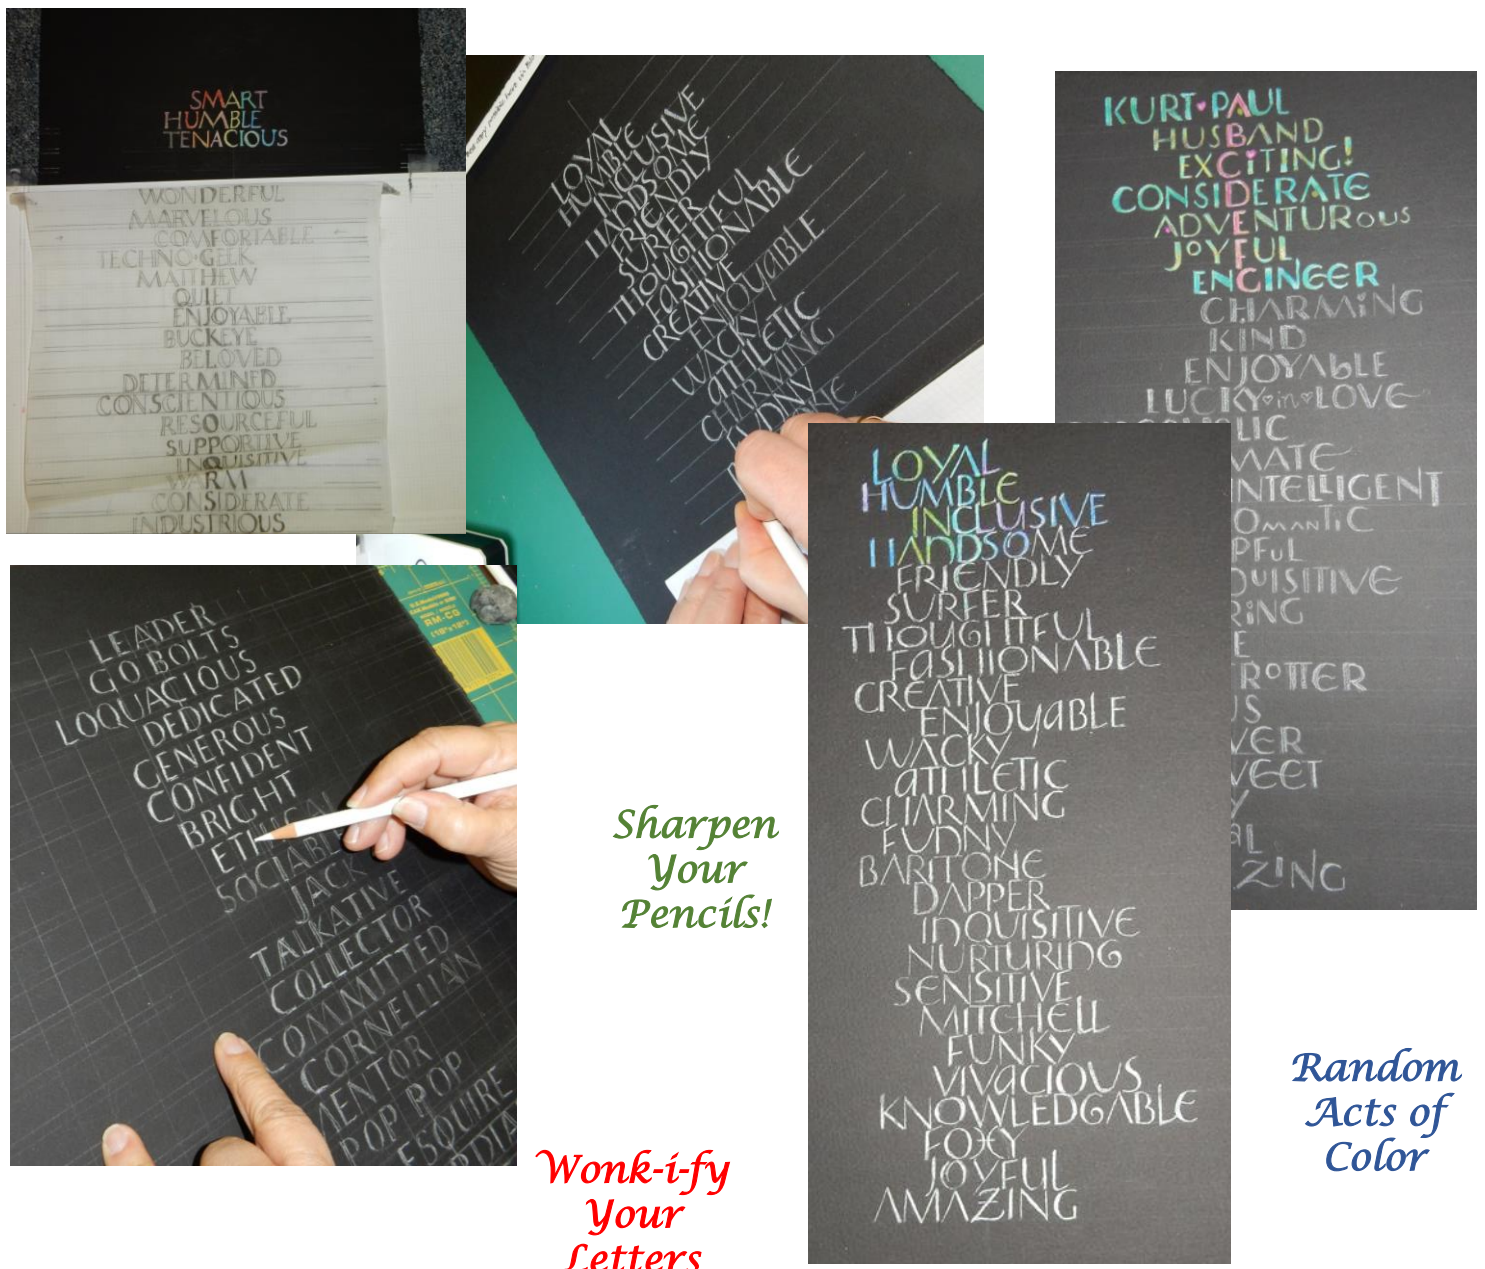 SMART
HUMBLE
TENACIOUS
WONDERFUL
MARVELOUS
COMFORTABLE
TECHNO·GEEK
MATTHEW
QUIET
ENJOYABLE
BUCKEYE
BELOVED
DETERMINED
CONSCIENTIOUS
RESOURCEFUL
SUPPORTIVE
INQUISITIVE
WARM
CONSIDERATE
INDUSTRIOUS
LOYAL
HUMBLE
INCLUSIVE
HANDSOME
FRIENDLY
SURFER
THOUGHTFUL
FASHIONABLE
CREATIVE
ENJOYaBLE
WACKY
aTHLETIC
CHARMING
FUNNY
KURT·PAUL
HUSBAND
EXCiTING!
CONSIDERATE
ADVENTUROUS
JOYFUL
ENGINEER
CHARMiNG
KIND
ENJOYAbLE
LUCKY♥in♥LOVE
LIC
MATE
INTELLIGENT
OMANTiC
PFuL
QUISITIVE
RiNG
E
ROTTER
US
VER
VEET
Y
aL
ZING
LEADER
GO BOLTS
LOQUACIOUS
DEDICATED
GENEROUS
CONFIDENT
BRIGHT
ETHICAL
SOCIABLE
JACK
TALKATIVE
COLLECTOR
COMMITTED
CORNELLIAN
MENTOR
POP POP
ESQUIRE
RM-CG
LOYAL
HUMBLE
INCLUSIVE
HANDSOME
FRIENDLY
SURFER
THOUGHTFUL
FASHIONABLE
CREATIVE
ENJOyaBLE
WACKY
aTHLETIC
CHARMING
FUNNY
BARITONE
DAPPER
INQUISITIVE
NURTURING
SENSITIVE
MITCHELL
FUNKY
VIVaCIOUS
KNOWLEDGABLE
FOXY
JOYFUL
AMAZING
Sharpen
Your
Pencils!
Random
Acts of
Color
Wonk-i-fy
Your
Letters